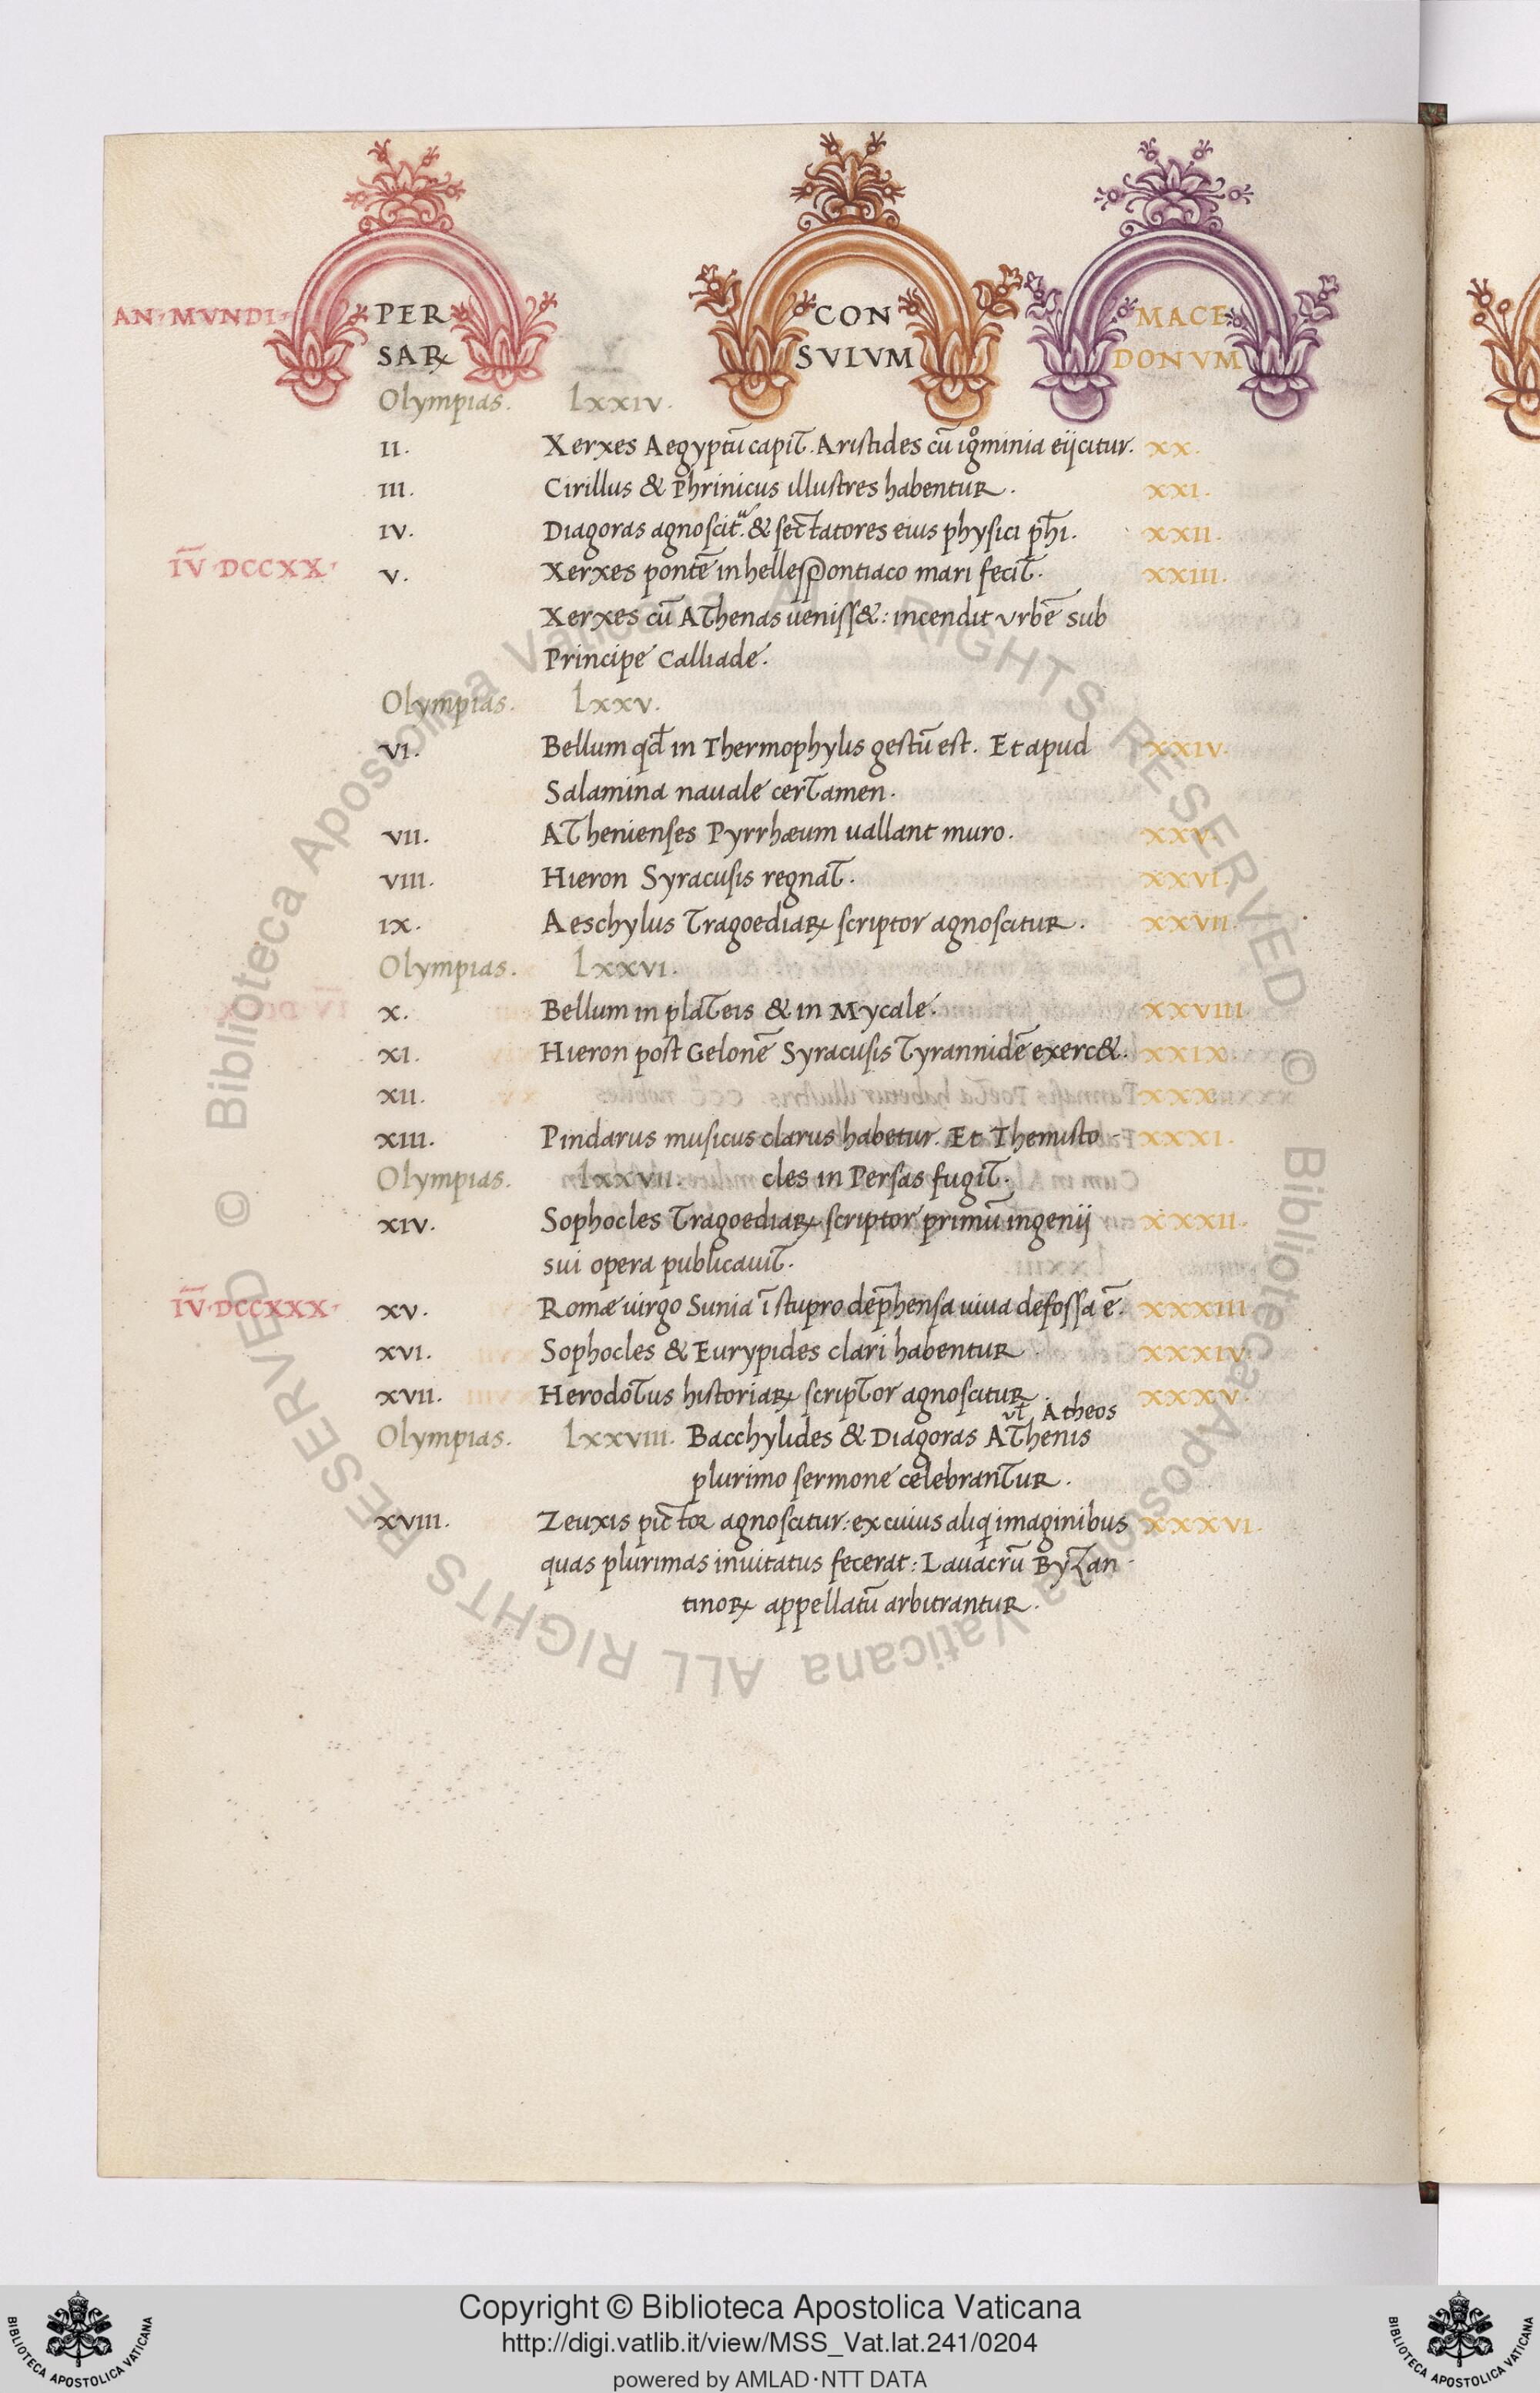 AN· MVNDI· PER CON MACE
SAꝜ SVLVM DONVM
Olympias. Lxxiv.
II. Xerxes Aegyptū capit. Aristides cū igominia eijcitur. XX.
III. Cirillus & Phrinicus illustres habentur. XXI.
IV. Diagoras agnoscit. & sectatores eius physici phi. XXII.
IV·DCCXX· V. Xerxes pontē in hellespontiaco mari fecit. XXIII.
Xerxes cū Athenas ueniss&: incendit vrbē sub
Principe Calliade.
Olympias. Lxxv.
VI. Bellum qd in Thermophylis gestū est. Et apud XXIV.
Salamina nauale certamen.
VII. Athenienses Pyrrhæum uallant muro. XXV.
VIII. Hieron Syracusis regnat. XXVI.
IX. Aeschylus Tragoediaꝝ scriptor agnoscitur. XXVII.
Olympias. Lxxvi.
X. Bellum in plateis & in Mycale. XXVIII
XI. Hieron post Gelonē Syracusis Tyrannidē exerc&. XXIX.
XII. XXX
XIII. Pindarus musicus clarus habetur. Et Themisto- XXXI.
Olympias. Lxxvii. cles in Persas fugit.
XIV. Sophocles Tragoediaꝝ scriptor primū ingenij XXXII.
sui opera publicauit.
IV·DCCXXX· XV. Romæ uirgo Sunia ī stupro dephensa uiua defossa ē. XXXIII
XVI. Sophocles & Eurypides clari habentur XXXIV.
XVII. Herodotus historiaꝝ scriptor agnoscitur. XXXV.
vt Atheos
Olympias. Lxxviii. Bacchylides & Diagoras Athenis
plurimo sermone celebrantur.
XVIII. Zeuxis pictor agnoscitur: ex cuius aliq imaginibus XXXVI.
quas plurimas inuitatus fecerat: Lauacrū Byzan-
tinoꝝ appellatū arbitrantur.
© Biblioteca Apostolica Vaticana ALL RIGHTS RESERVED © Biblioteca Apostolica Vaticana ALL RIGHTS RESERVED
Copyright © Biblioteca Apostolica Vaticana
http://digi.vatlib.it/view/MSS_Vat.lat.241/0204
powered by AMLAD·NTT DATA
BIBLIOTECA APOSTOLICA VATICANA
BIBLIOTECA APOSTOLICA VATICANA